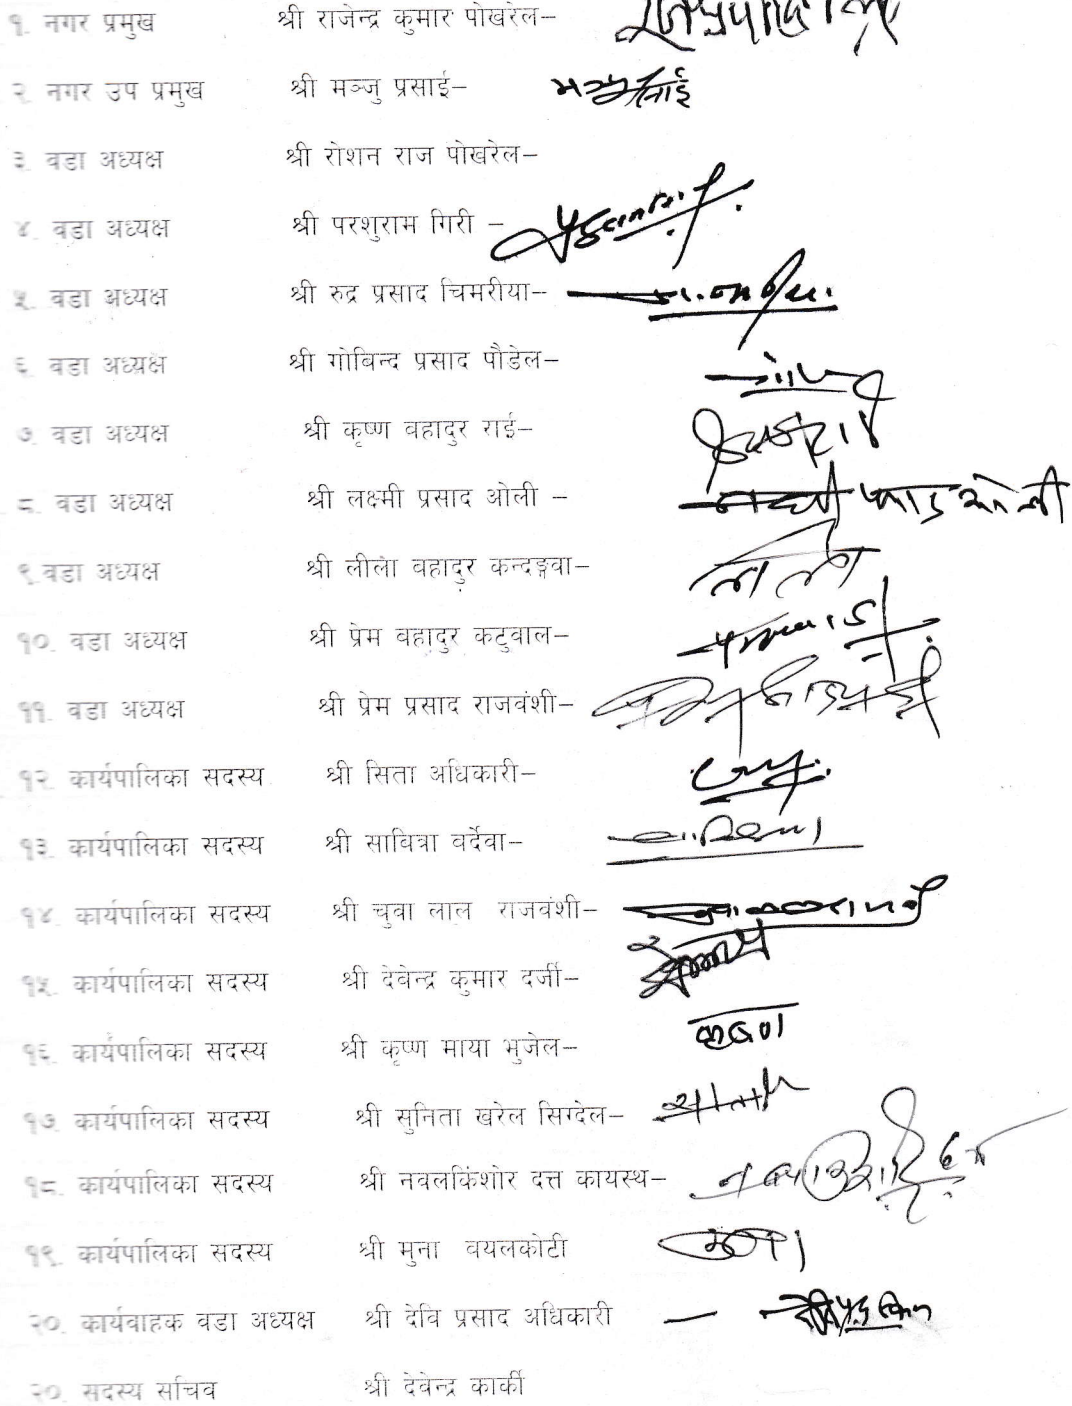 १. नगर प्रमुख श्री राजेन्द्र कुमार पोखरेल–
२. नगर उप प्रमुख श्री मञ्जु प्रसाई–
३. वडा अध्यक्ष श्री रोशन राज पोखरेल–
४. वडा अध्यक्ष श्री परशुराम गिरी –
५. वडा अध्यक्ष श्री रुद्र प्रसाद चिमरीया–
६. वडा अध्यक्ष श्री गोबिन्द प्रसाद पौडेल–
७. वडा अध्यक्ष श्री कृष्ण वहादुर राई–
८. वडा अध्यक्ष श्री लक्ष्मी प्रसाद ओली –
९.वडा अध्यक्ष श्री लीला वहादुर कन्दङ्गवा–
१०. वडा अध्यक्ष श्री प्रेम वहादुर कटुवाल–
११. वडा अध्यक्ष श्री प्रेम प्रसाद राजवंशी–
१२. कार्यपालिका सदस्य श्री सिता अधिकारी–
१३. कार्यपालिका सदस्य श्री सावित्रा वर्देवा–
१४. कार्यपालिका सदस्य श्री चुवा लाल राजवंशी–
१५. कार्यपालिका सदस्य श्री देवेन्द्र कुमार दर्जी–
१६. कार्यपालिका सदस्य श्री कृष्ण माया भुजेल–
१७. कार्यपालिका सदस्य श्री सुनिता खरेल सिग्देल–
१८. कार्यपालिका सदस्य श्री नवलकिंशोर दत्त कायस्थ–
१९. कार्यपालिका सदस्य श्री मुना वयलकोटी
२०. कार्यवाहक वडा अध्यक्ष श्री देवि प्रसाद अधिकारी —
२०. सदस्य सचिव श्री देवेन्द्र कार्की